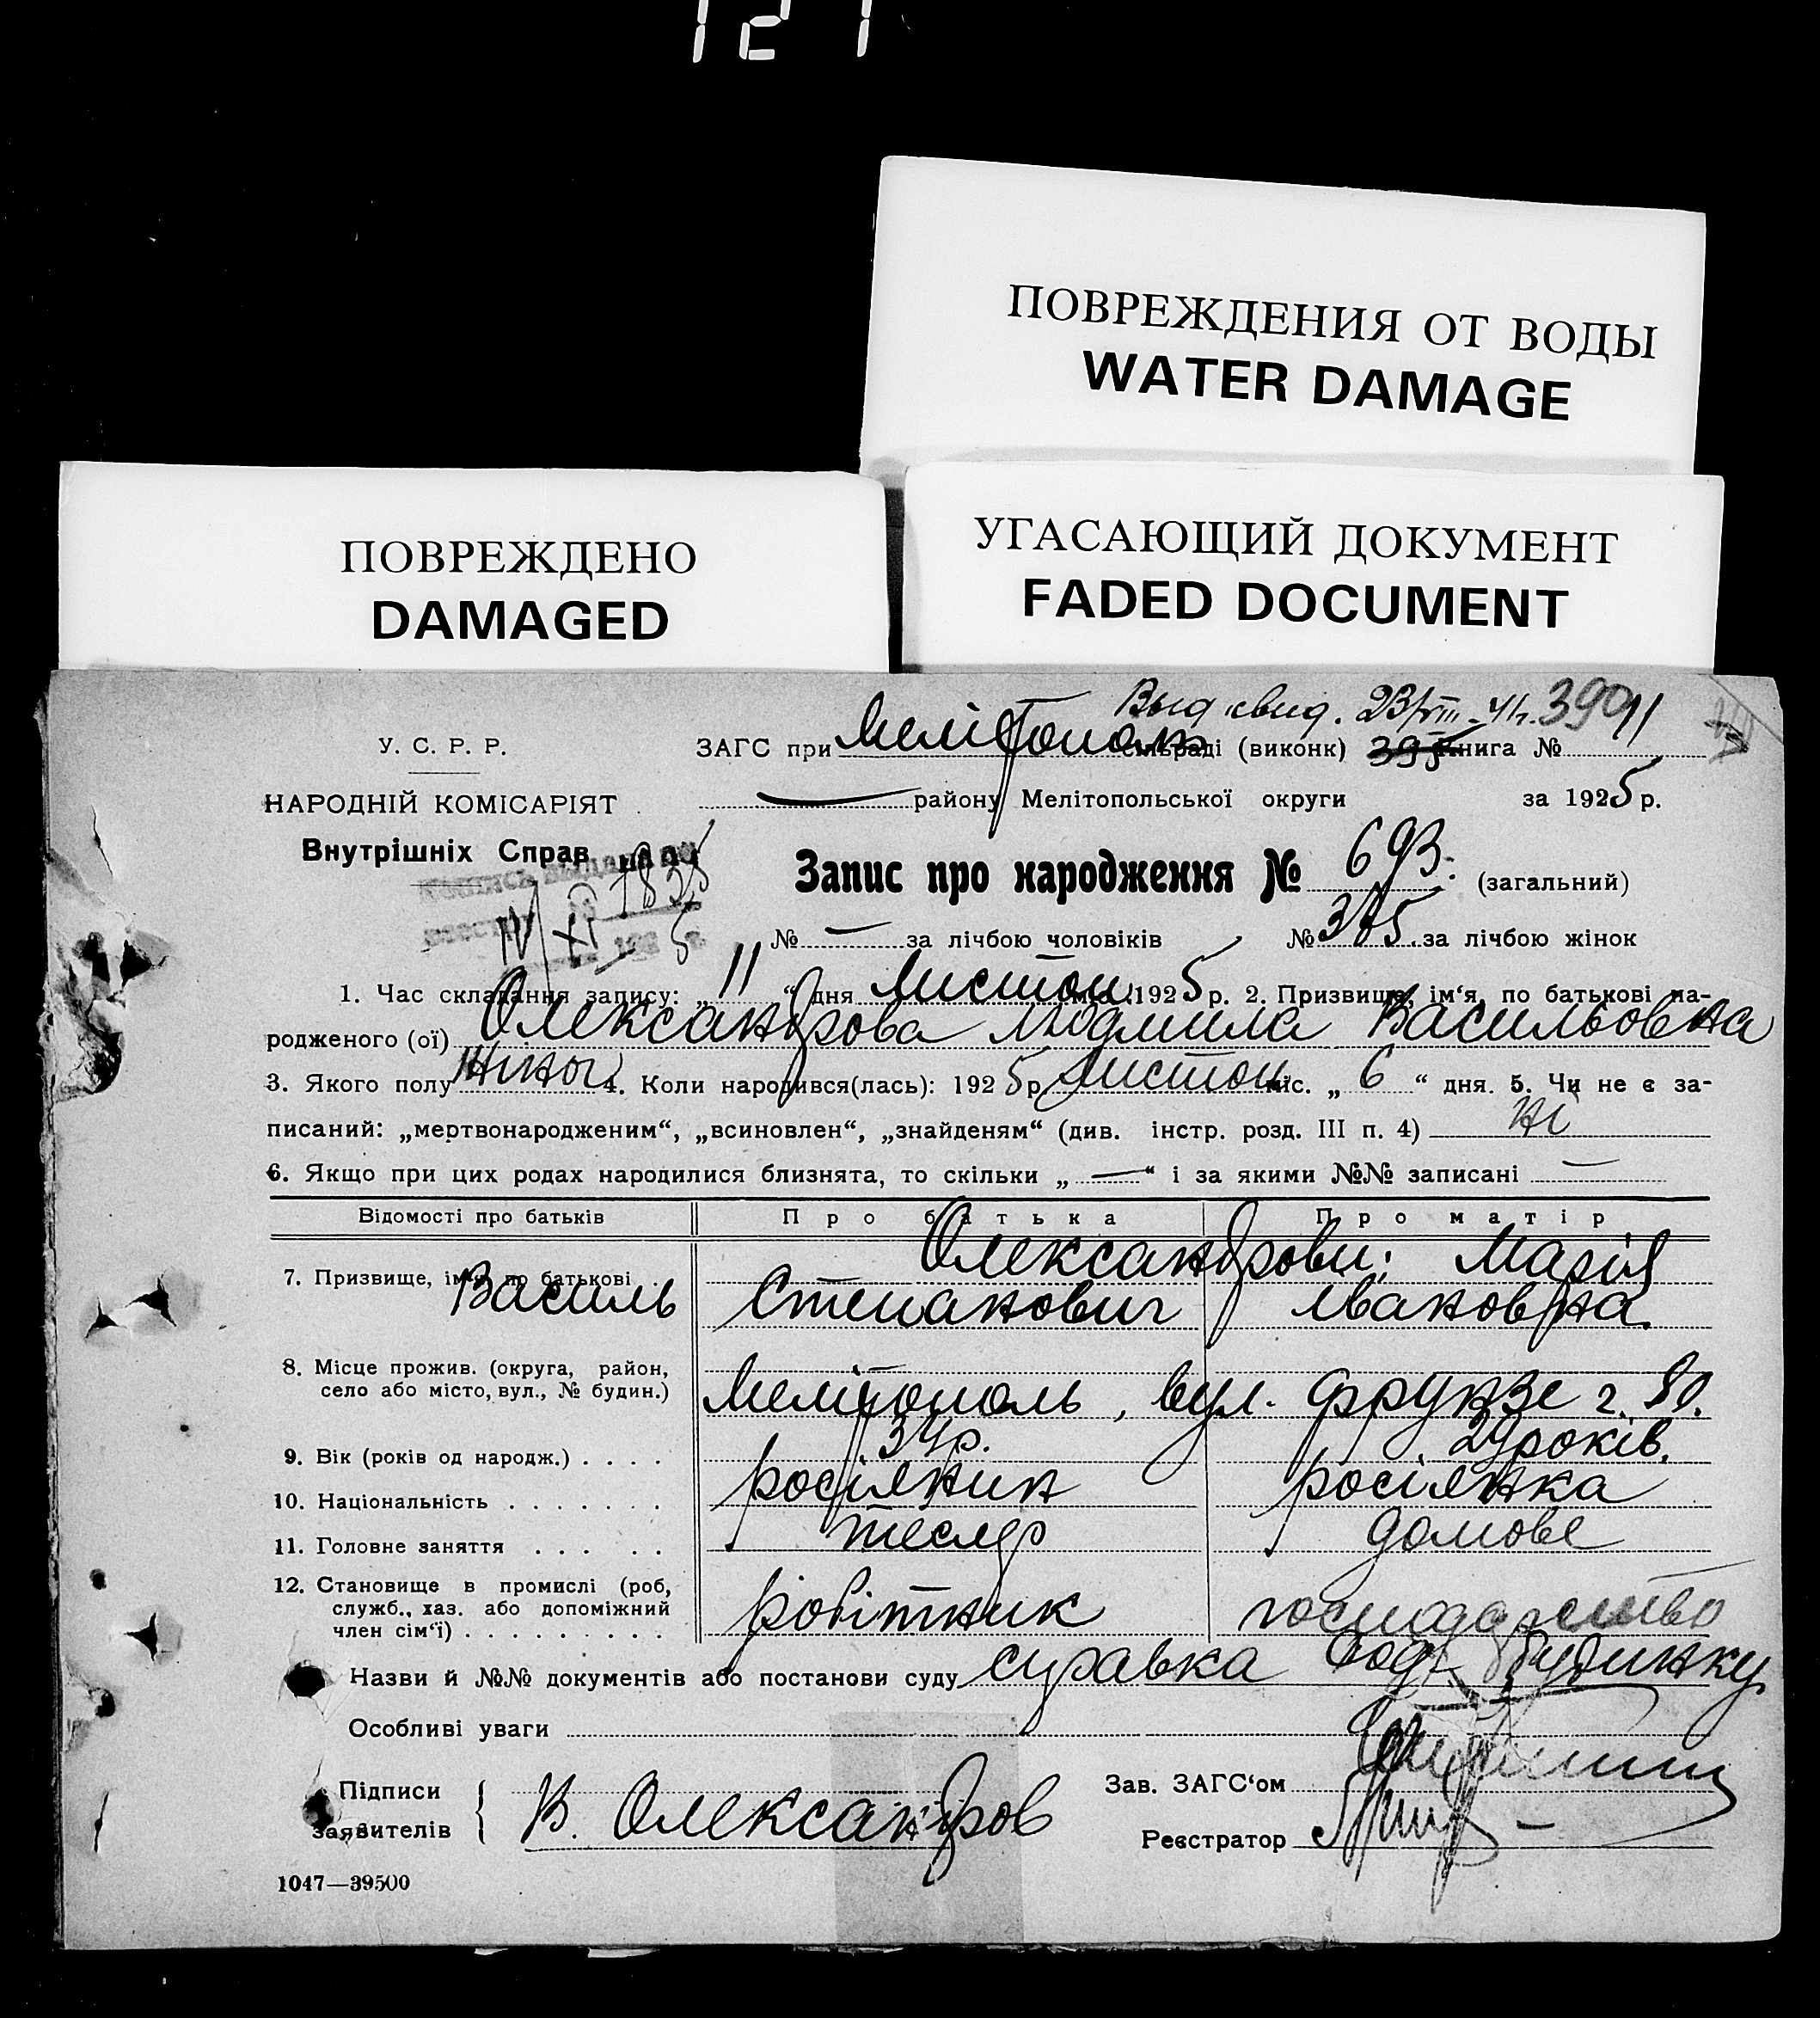 121
ПОВРЕЖДЕНИЯ ОТ ВОДЫ
WATER DAMAGE
ПОВРЕЖДЕНО
DAMAGED
УГАСАЮЩИЙ ДОКУМЕНТ
FADED DOCUMENT
Выд свид. 23/VIII-41г. 390 11
У. С. Р. Р.
ЗАГС при Мелітополь сільраді (виконк) 395 Книга №
НАРОДНІЙ КОМІСАРІЯТ
— району Мелітопольської округи за 1925 р.
Внутрішніх Справ
Запис про народження № 693. (загальний)
№ — за лічбою чоловіків № 315 за лічбою жінок
1. Час складання запису: „ 11 “ дня Листоп. 1925 р. 2. Призвище, ім‘я, по батькові на-
родженого (ої) Олександрова Людмила Васильовна
3. Якого полу жіноч. 4. Коли народився(лась): 1925 р. Листоп. міс. „ 6 “ дня. 5. Чи не є за-
писаний: „мертвонародженим“, „всиновлен“, „знайденям“ (див. інстр. розд. III п. 4) ні
6. Якщо при цих родах народилися близнята, то скільки „ — “ і за якими №№ записані —
Відомості про батьків Про батька Про матір
Олександрови: Марія
7. Призвище, ім‘я, по батькові
Василь Степанович Івановна
8. Місце прожив. (округа, район,
село або місто, вул., № будин.) Мелітополь, вул. Фрунзе г. 80.
9. Вік (років од народж.) . . . . 34р. 24 років.
10. Національність . . . . . . . росіянин росіянка
11. Головне заняття . . . . . тесляр домове
12. Становище в промислі (роб,
служб., хаз. або допоміжний
член сім‘ї) . . . . . . . . . робітник господарство
Назви й №№ документів або постанови суду справка род. будинку
Особливі уваги
Підписи
заявителів { В. Олександров
Зав. ЗАГС‘ом
Реєстратор
1047—39500